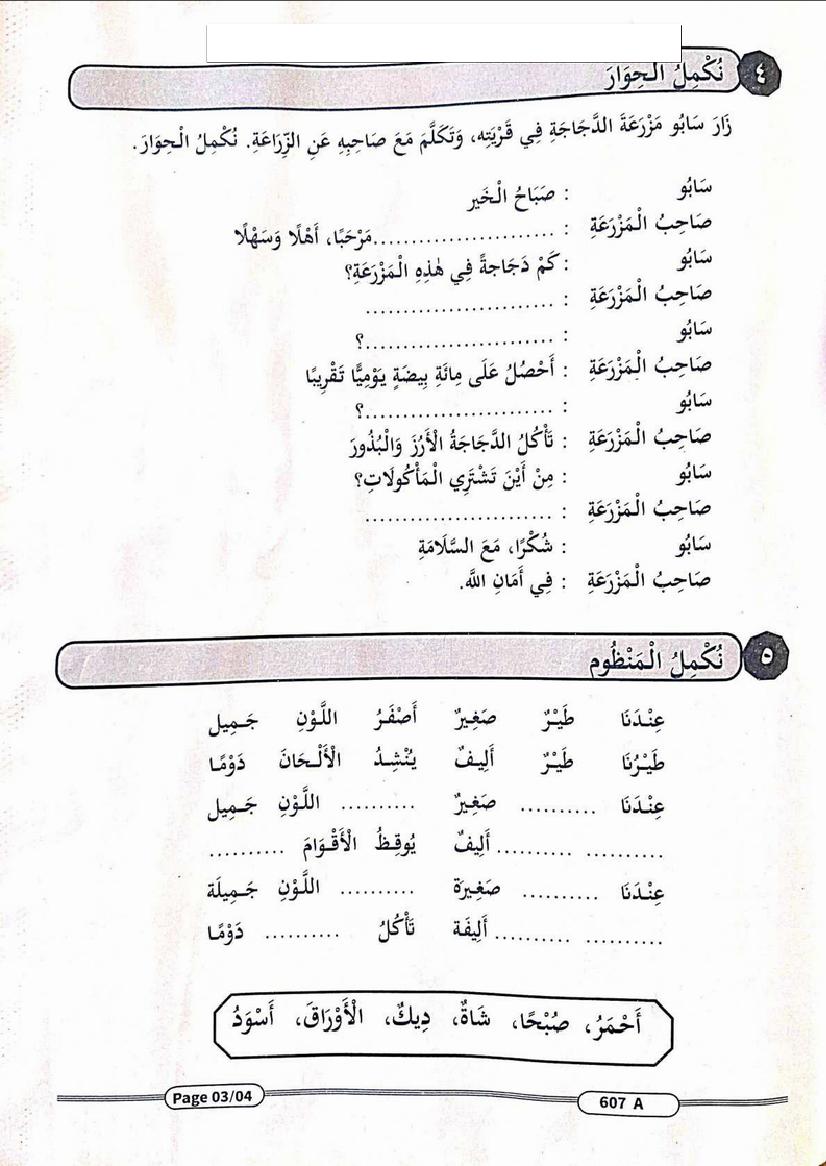 ٤ نُكْمِلُ الْحِوَارَ
زَارَ سَابُو مَزْرَعَةَ الدَّجَاجَةِ فِي قَرْيَتِه، وَتَكَلَّمَ مَعَ صَاحِبِهِ عَنِ الزِّرَاعَةِ. نُكْمِلُ الْحِوَارَ.
سَابُو : صَبَاحُ الْخَير
صَاحِبُ الْمَزْرَعَةِ : ........................مَرْحَبًا، أَهْلًا وَسَهْلًا
سَابُو : كَمْ دَجَاجَةً فِي هٰذِهِ الْمَزْرَعَةِ؟
صَاحِبُ الْمَزْرَعَةِ : .........................
سَابُو : .........................؟
صَاحِبُ الْمَزْرَعَةِ : أَحْصُلُ عَلَى مِائَةِ بِيضَةٍ يَوْمِيًّا تَقْرِيبًا
سَابُو : .........................؟
صَاحِبُ الْمَزْرَعَةِ : تَأْكُلُ الدَّجَاجَةُ الْأَرُزَ وَالْبُذُورَ
سَابُو : مِنْ أَيْنَ تَشْتَرِي الْمَأْكُولَاتِ؟
صَاحِبُ الْمَزْرَعَةِ : .........................
سَابُو : شُكْرًا، مَعَ السَّلَامَةِ
صَاحِبُ الْمَزْرَعَةِ : فِي أَمَانِ اللَّه.
٥ نُكْمِلُ الْمَنْظُوم
عِنْدَنَا طَيْرٌ صَغِيرٌ أَصْفَرُ اللَّوْنِ جَمِيل
طَيْرُنَا طَيْرٌ أَلِيفٌ يُنْشِدُ الْأَلْحَانَ دَوْمًا
عِنْدَنَا .......... صَغِيرٌ .......... اللَّوْنِ جَمِيل
.......... .......... أَلِيفٌ يُوقِظُ الْأَقْوَامَ ..........
عِنْدَنَا .......... صَغِيرَة .......... اللَّوْنِ جَمِيلَة
.......... .......... أَلِيفَة تَأْكُلُ .......... دَوْمًا
أَحْمَرُ، صُبْحًا، شَاةٌ، دِيكٌ، الْأَوْرَاقَ، أَسْوَدُ
Page 03/04
607 A